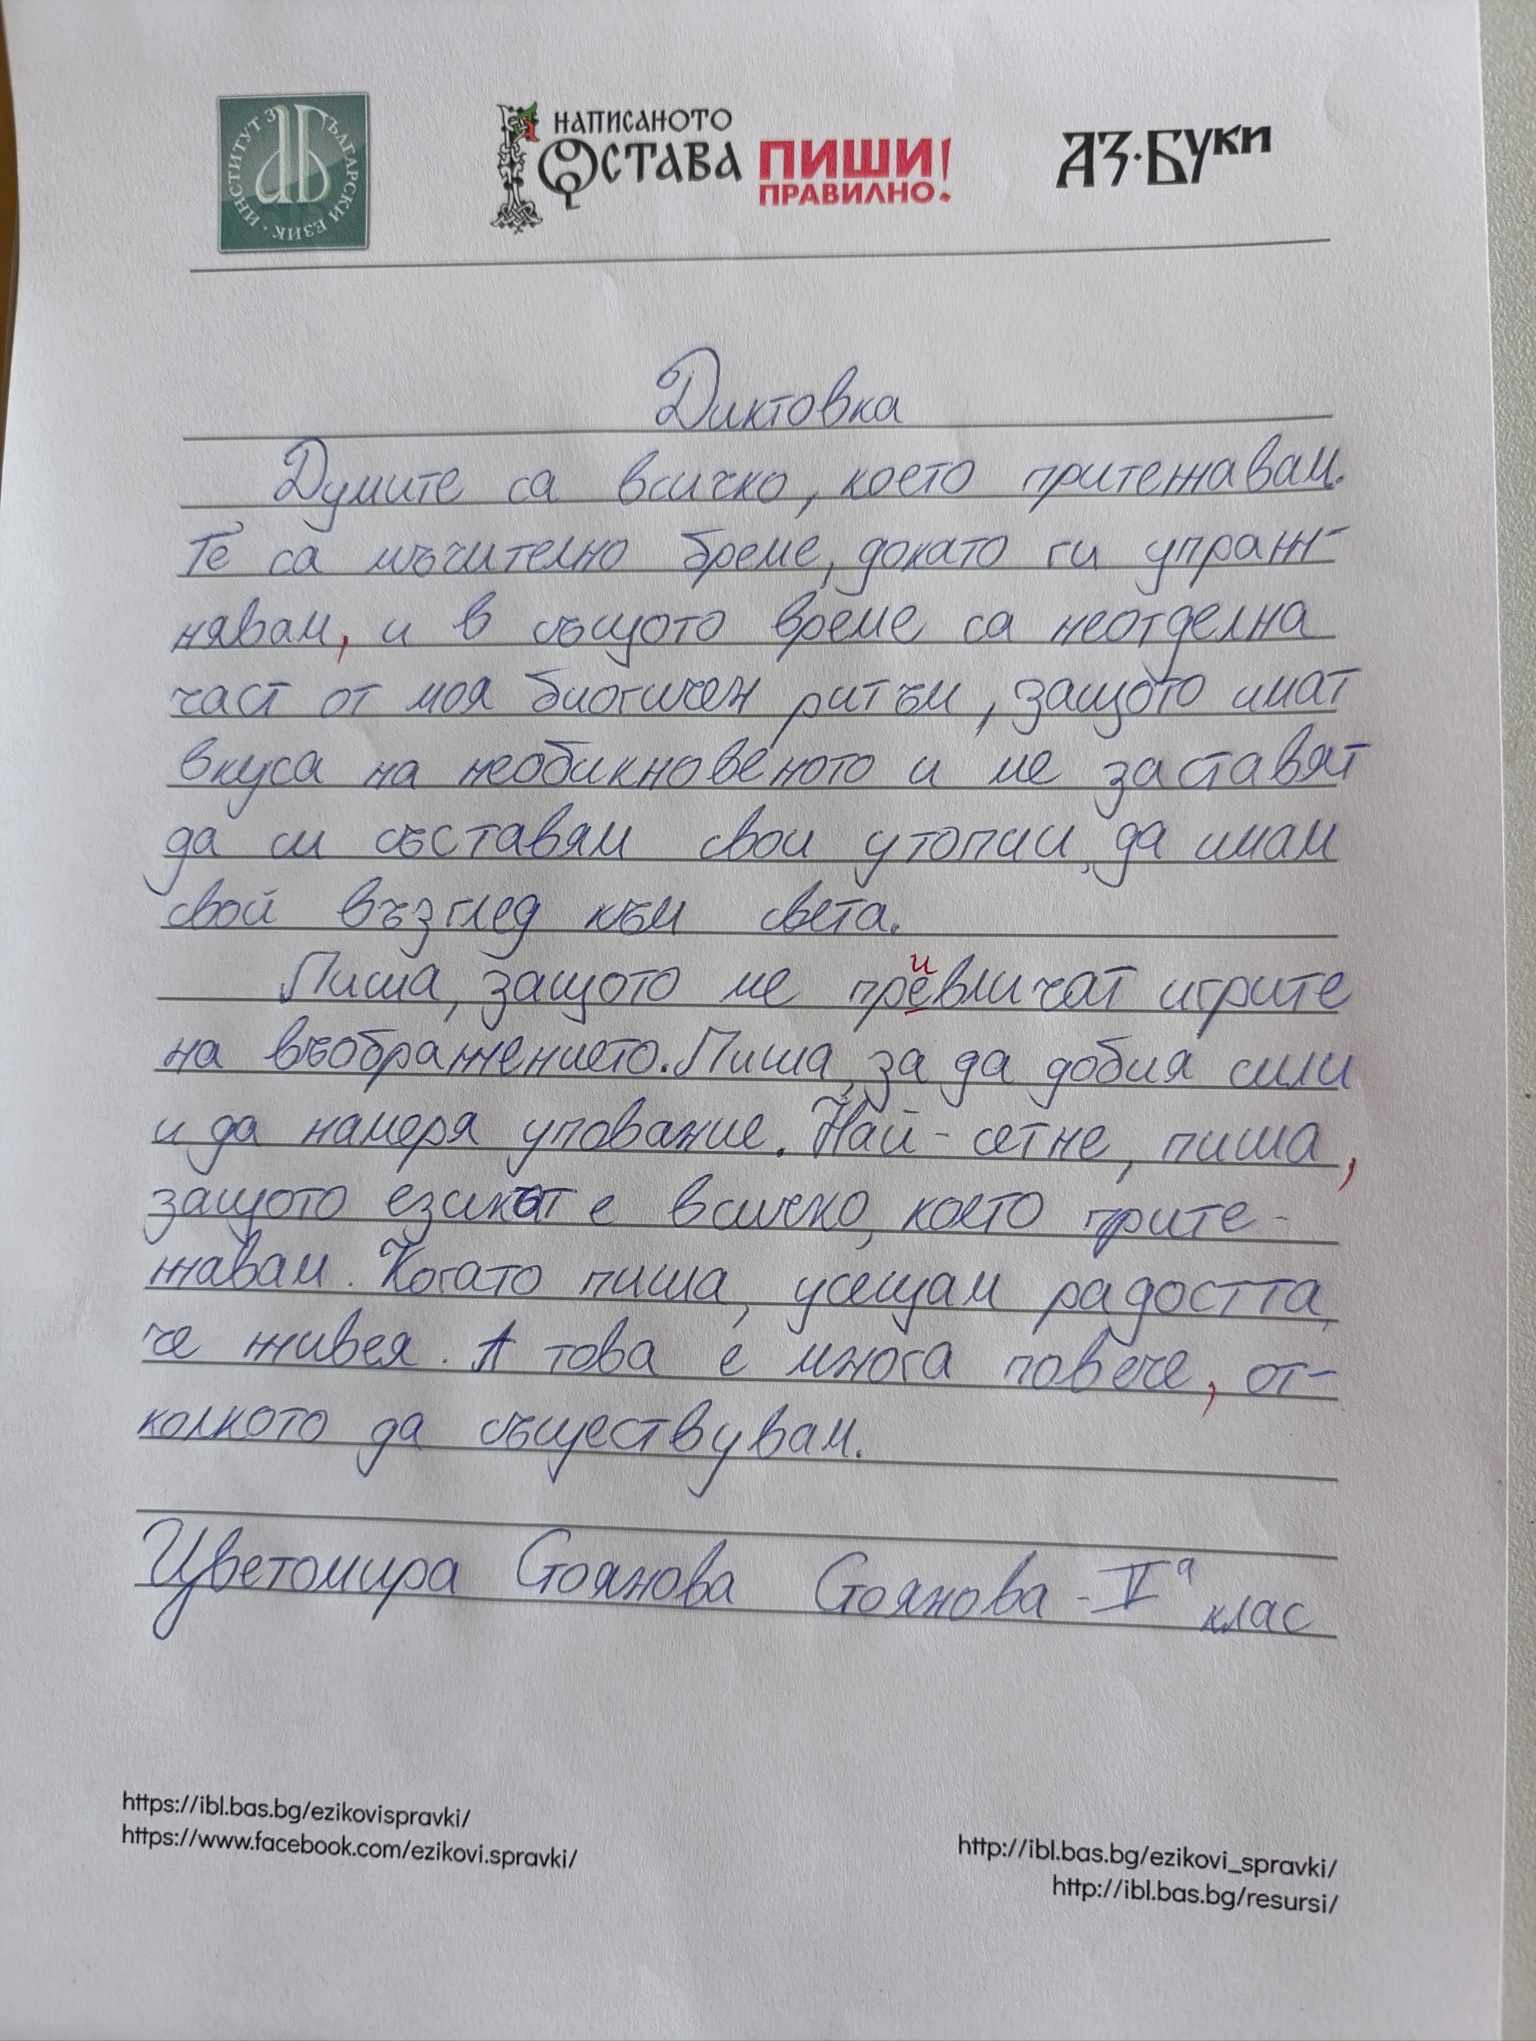 ИНСТИТУТ ЗА БЪЛГАРСКИ ЕЗИК
НАПИСАНОТО
ОСТАВА
ПИШИ!
ПРАВИЛНО!
АЗ·БУКИ
Диктовка
Думите са всичко, което притежавам.
Те са мъчително бреме, докато ги упраж-
нявам, и в същото време са неотделна
част от моя биогичен ритъм, защото имат
вкуса на необикновеното и ме заставят
да си съставям свои утопии, да имам
свой възглед към света.
и
Пиша, защото ме превличат игрите
на въображението. Пиша, за да добия сили
и да намеря упование. Най-сетне, пиша,
защото езикът е всичко, което прите-
жавам. Когато пиша, усещам радостта,
че живея. А това е много повече, от-
колкото да съществувам.
Цветомира Стоянова Стоянова - V а клас
https://ibl.bas.bg/ezikovispravki/
https://www.facebook.com/ezikovi.spravki/
http://ibl.bas.bg/ezikovi_spravki/
http://ibl.bas.bg/resursi/